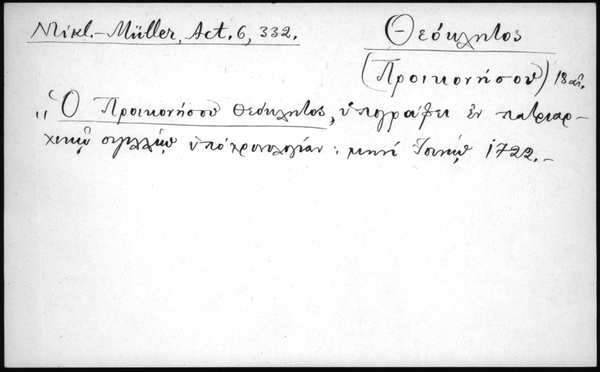 Mikl.-Müller, Act. 6, 332.
Θεόκλητος
(Προικονήσου) 18 αἰ.
„Ὁ Προικονήσου Θεόκλητος, ὑπογράφει ἐν πατριαρ-
χικῷ σιγιλλίῳ ὑπὸ χρονολογίαν: μηνί Ἰουνίῳ 1722.-